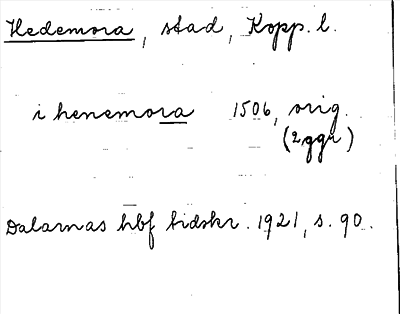 Hedemora, stad, Kopp. l.
i henemora 1506, orig.
(2ggr)
Dalarnas hbf tidskr. 1921, s. 90.